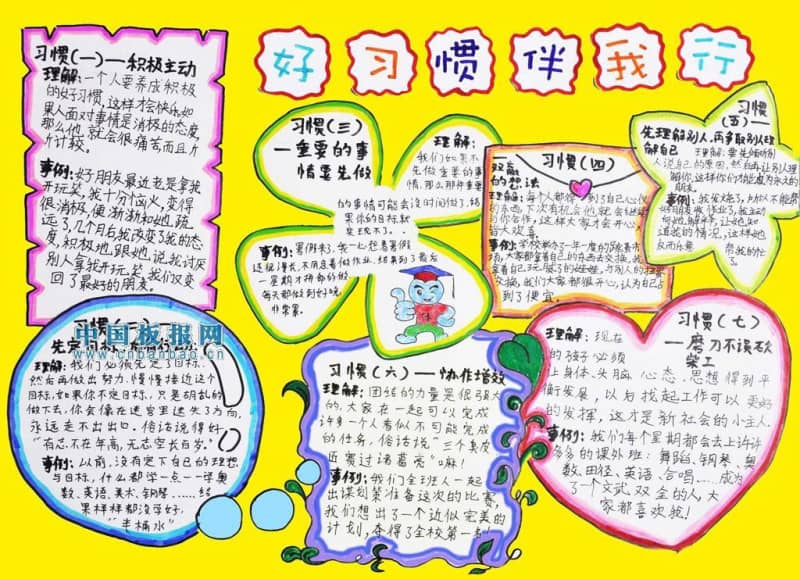 好习惯伴我行
习惯(一)—积极主动
理解:一个人要养成积极
的好习惯,这样才会快乐,如
果人面对事情是消极的态度,
那么他,就会很痛苦而且
斤计较。
事例:好朋友最近老是拿我
开玩笑,我十份心义,变得
很消极,便渐渐和她疏
远了,几个月后我改变了我的态
度,积极地跟她说我讨厌
别人拿我开玩笑,我们又变
回了最好的朋友。
习惯(二)—
先定目标
中国板报网
www.cnbanbao.cn
理解:我们必须先定了目标,
然后再做出努力,慢慢接近这个
目标,如果你不定目标,只是胡乱的
做下去,你会像在迷宫里迷失了方向,
永远走不出出口。俗话说得好
“有志不在年高,无志空长百岁。”
事例:以前,没有定下自己的理想
与目标,什么都学一点——学奥
数、英语、美术、钢琴……结
果样样都没学好,
“半桶水”
习惯(三)
—重要的事
情要先做
理解:
我们如果不
先做重要的事
情,那么那件重要
的事情可能会没时间做了,结
果你的目标就
实现不了。
事例:暑假来了,我一心想着暑假
还很漫长,不用急着做作业,结果到了最后
一星期才拼命的做
每天都做到好晚,
非常累。
习惯(四)
—双赢
的想法
理解:每个人都得到自己心仪
的东西,下次有机会他就会继续
与你合作,这样大家才会开心,
皆大欢喜。
事例:学校举办了一年一度的跳蚤市
场,大家都拿着自己的东西去交换,我
拿着自己玩腻了的娃娃,与别人的
交换,我们大家都很开心,认为自己占
到了便宜。
习惯
(五)—
先理解别人,再争取别人理
解自己
理解:要先倾听别
人说自己的原因,然后再让别人理
解你,这样你们才能成为永远的
朋友。
事例:我发烧了,所以不能帮
好朋友收作业了,我主动
与她解释,让她知
道我的情况,这样她
反而乐意
帮我的忙
了。
习惯(六)—协作增效
理解:团结的力量是很强大
的,大家在一起可以完成
许多一个人看似不可能完成
的任务,俗话说“三个臭皮
匠赛过诸葛亮”嘛!
事例:我们全班人一起
出谋划策准备这次的比赛,
我们想出了一个近似完美的
计划,夺得了全校第一名!
习惯(七)
—磨刀不误砍
柴工
理解:现在
的孩子必须
让身体、头脑、心态、思想得到平
衡发展,以后找起工作可以更好
的发挥,这才是新社会的小主人。
事例:我们每个星期都会去上许许
多多的课外班:舞蹈、钢琴、奥
数、田径、英语、合唱……成为
了一个文武双全的人,大
家都喜欢我!